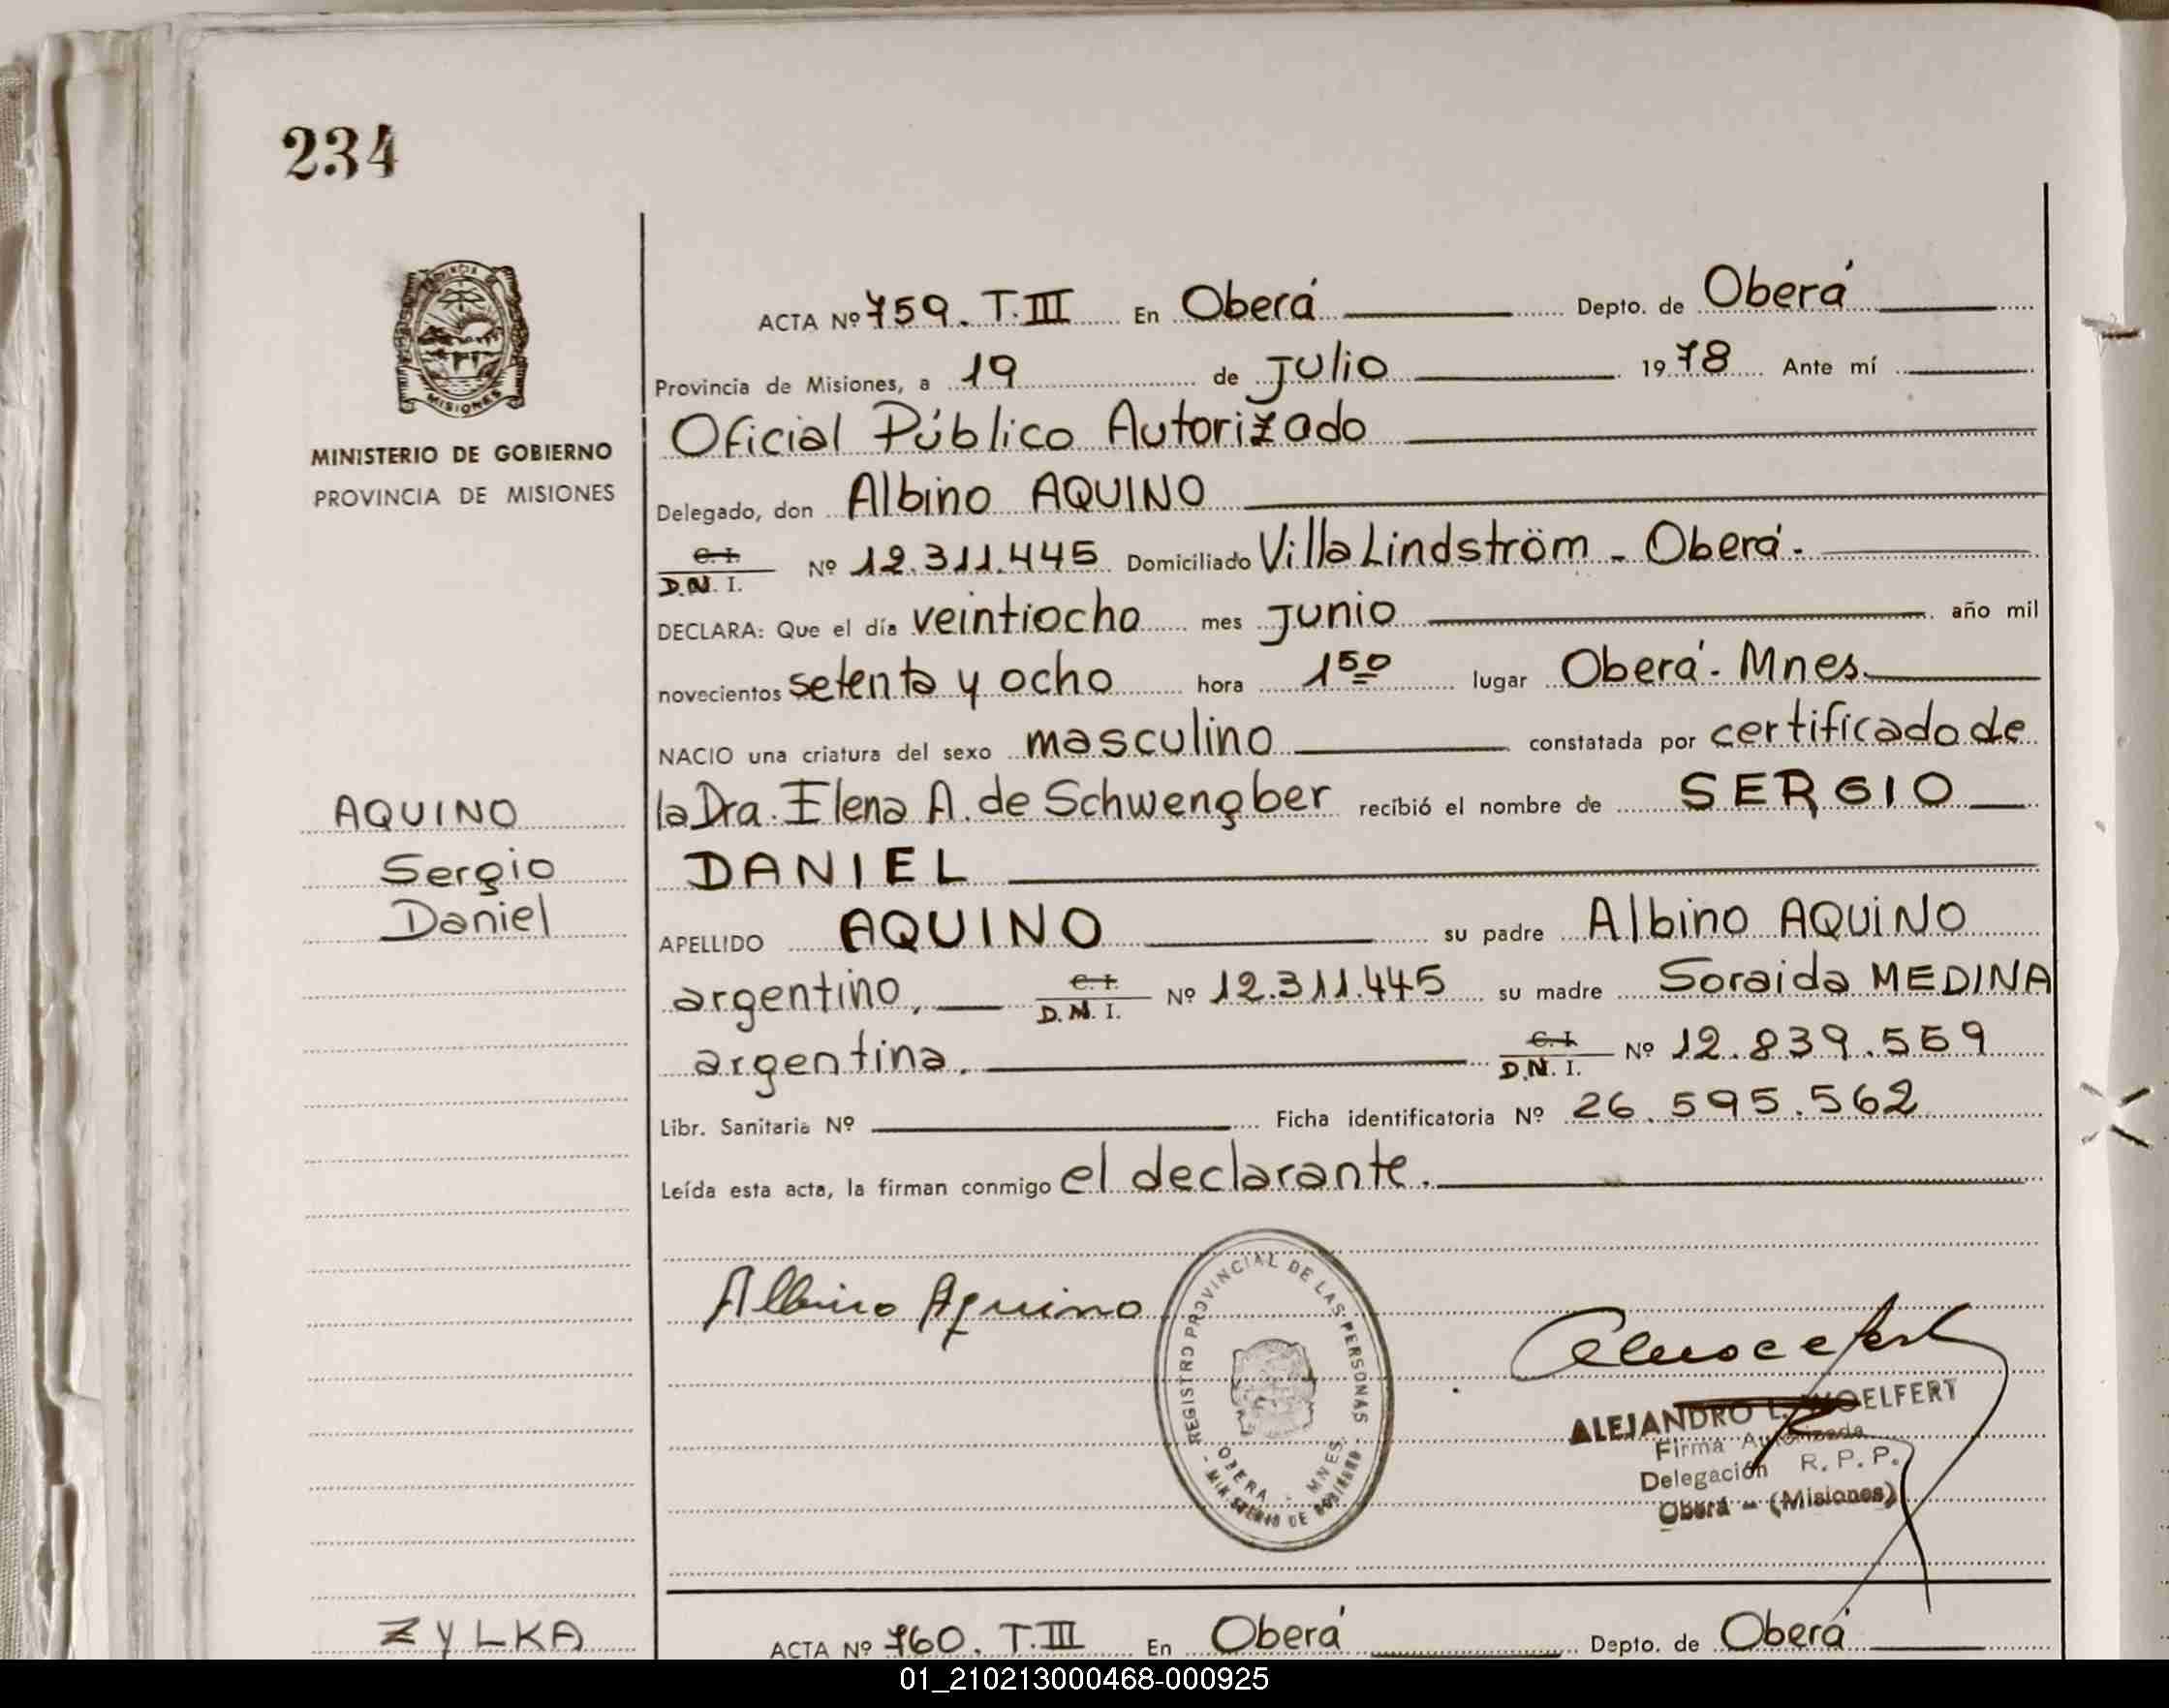 234
PROVINCIA
MISIONES
MINISTERIO DE GOBIERNO
PROVINCIA DE MISIONES
ACTA Nº 759. T. III En Oberá Depto. de Oberá
Provincia de Misiones, a 19 de Julio 1978 Ante mí
Oficial Público Autorizado
Delegado, don Albino AQUINO
C. I.
D. N. I. Nº 12.311.445 Domiciliado Villa Lindström - Oberá.
DECLARA: Que el día veintiocho mes Junio año mil
novecientos setenta y ocho hora 1 50 lugar Oberá - Mnes.
NACIO una criatura del sexo masculino constatada por certificado de
AQUINO
la Dra. Elena A. de Schwengber recibió el nombre de SERGIO
Sergio
DANIEL
Daniel
APELLIDO AQUINO su padre Albino AQUINO
argentino, C. I. D. N. I. Nº 12.311.445 su madre Soraida MEDINA
argentina. C. I. D. N. I. Nº 12.839.559
Libr. Sanitaria Nº Ficha identificatoria Nº 26.595.562
Leída esta acta, la firman conmigo el declarante.
Albino Aquino
REGISTRO PROVINCIAL DE LAS PERSONAS
OBERA - MNES.
- MINISTERIO DE GOBIERNO -
ALEJANDRO L. WOELFERT
Firma Autorizada
Delegación R. P. P.
Oberá - (Misiones)
ZYLKA
ACTA Nº 760. T. III En Oberá Depto. de Oberá
01_210213000468-000925